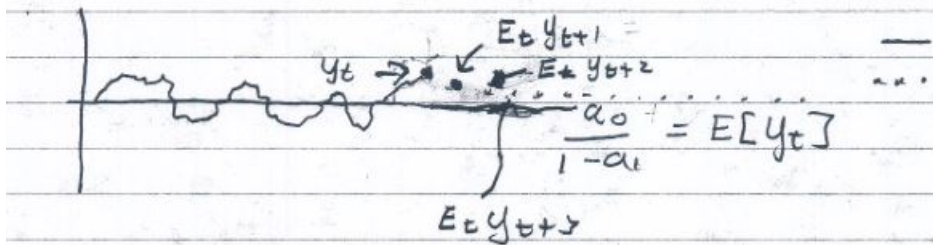 E_t y_{t+1}
y_t
E_t y_{t+2}
a_0 / (1 - a_1) = E[y_t]
E_t y_{t+3}